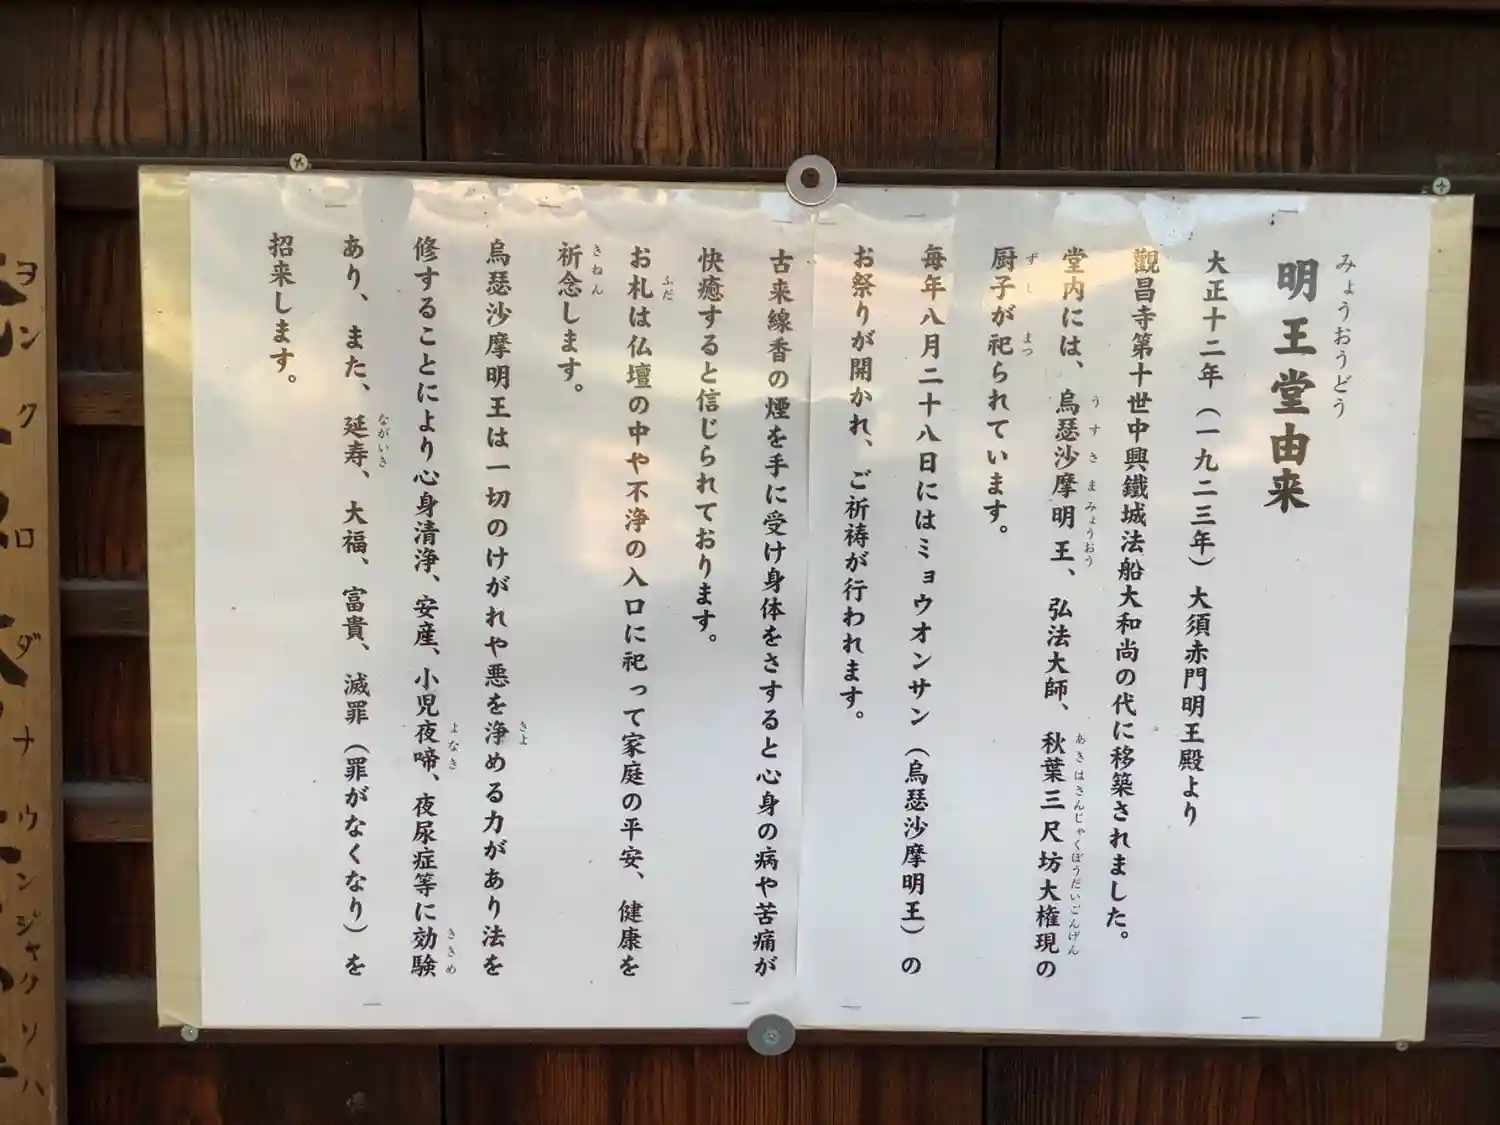 明王堂由来
みょうおうどう
大正十二年（一九二三年）大須赤門明王殿より
觀昌寺第十世中興鐵城法船大和尚の代に移築されました。
堂内には、烏瑟沙摩明王、弘法大師、秋葉三尺坊大権現の
うすさまみょうおう
あきはさんじゃくぼうだいごんげん
厨子が祀られています。
ずし
まつ
毎年八月二十八日にはミョウオンサン（烏瑟沙摩明王）の
お祭りが開かれ、ご祈祷が行われます。
古来線香の煙を手に受け身体をさすると心身の病や苦痛が
快癒すると信じられております。
お札は仏壇の中や不浄の入口に祀って家庭の平安、健康を
ふだ
祈念します。
きねん
烏瑟沙摩明王は一切のけがれや悪を浄める力があり法を
きよ
修することにより心身清浄、安産、小児夜啼、夜尿症等に効験
よなき
ききめ
あり、また、延寿、大福、富貴、滅罪（罪がなくなり）を
ながいき
招来します。
ヲンクロダナウンジャクソハ